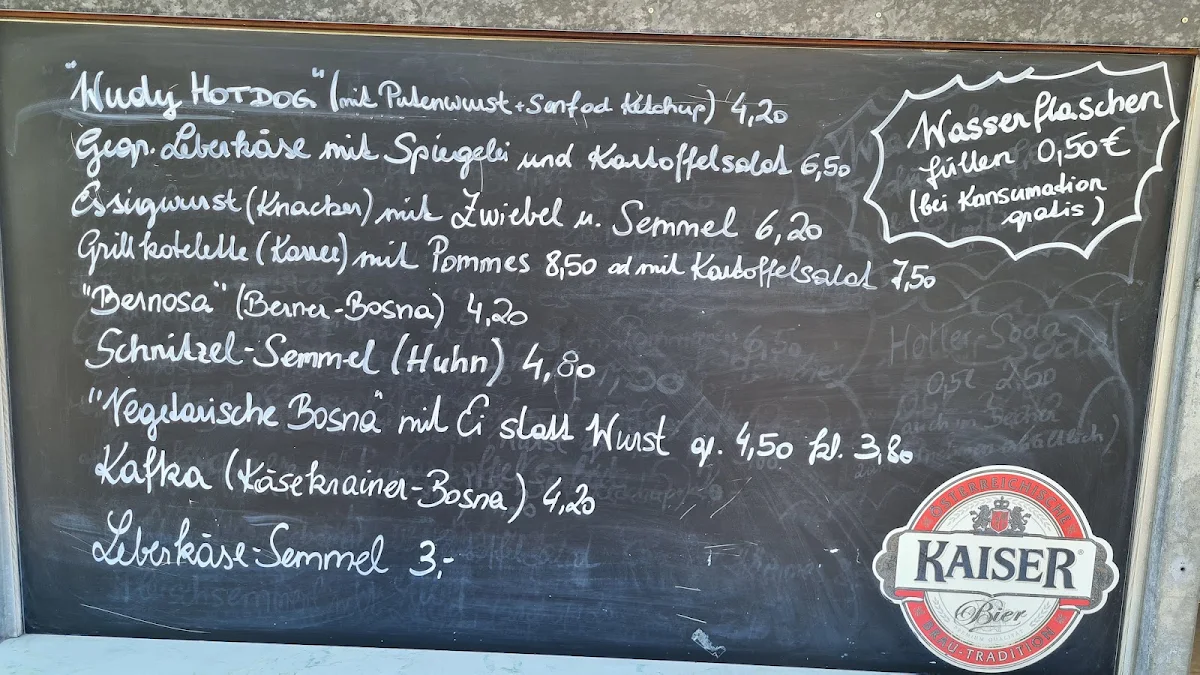 "Wudy HOTDOG" (mit Putenwurst + Senf od Ketchup) 4,20
Gegr. Leberkäse mit Spiegelei und Kartoffelsalat 6,50
Essigwurst (Knacker) mit Zwiebel u. Semmel 6,20
Grillkotelette (Karree) mit Pommes 8,50 od mit Kartoffelsalat 7,50
"Bernosa" (Berner-Bosna) 4,20
Schnitzel-Semmel (Huhn) 4,80
"Vegetarische Bosna" mit Ei statt Wurst gr. 4,50 kl. 3,80
Kafka (Käsekrainer-Bosna) 4,20
Leberkäse-Semmel 3,-
Wasserflaschen
füllen 0,50 €
(bei Konsumation
gratis)
Hotter-Soda
0,5l 2.50
auch im Becher
ÖSTERREICHISCHE
KAISER
Bier
BRAU-TRADITION